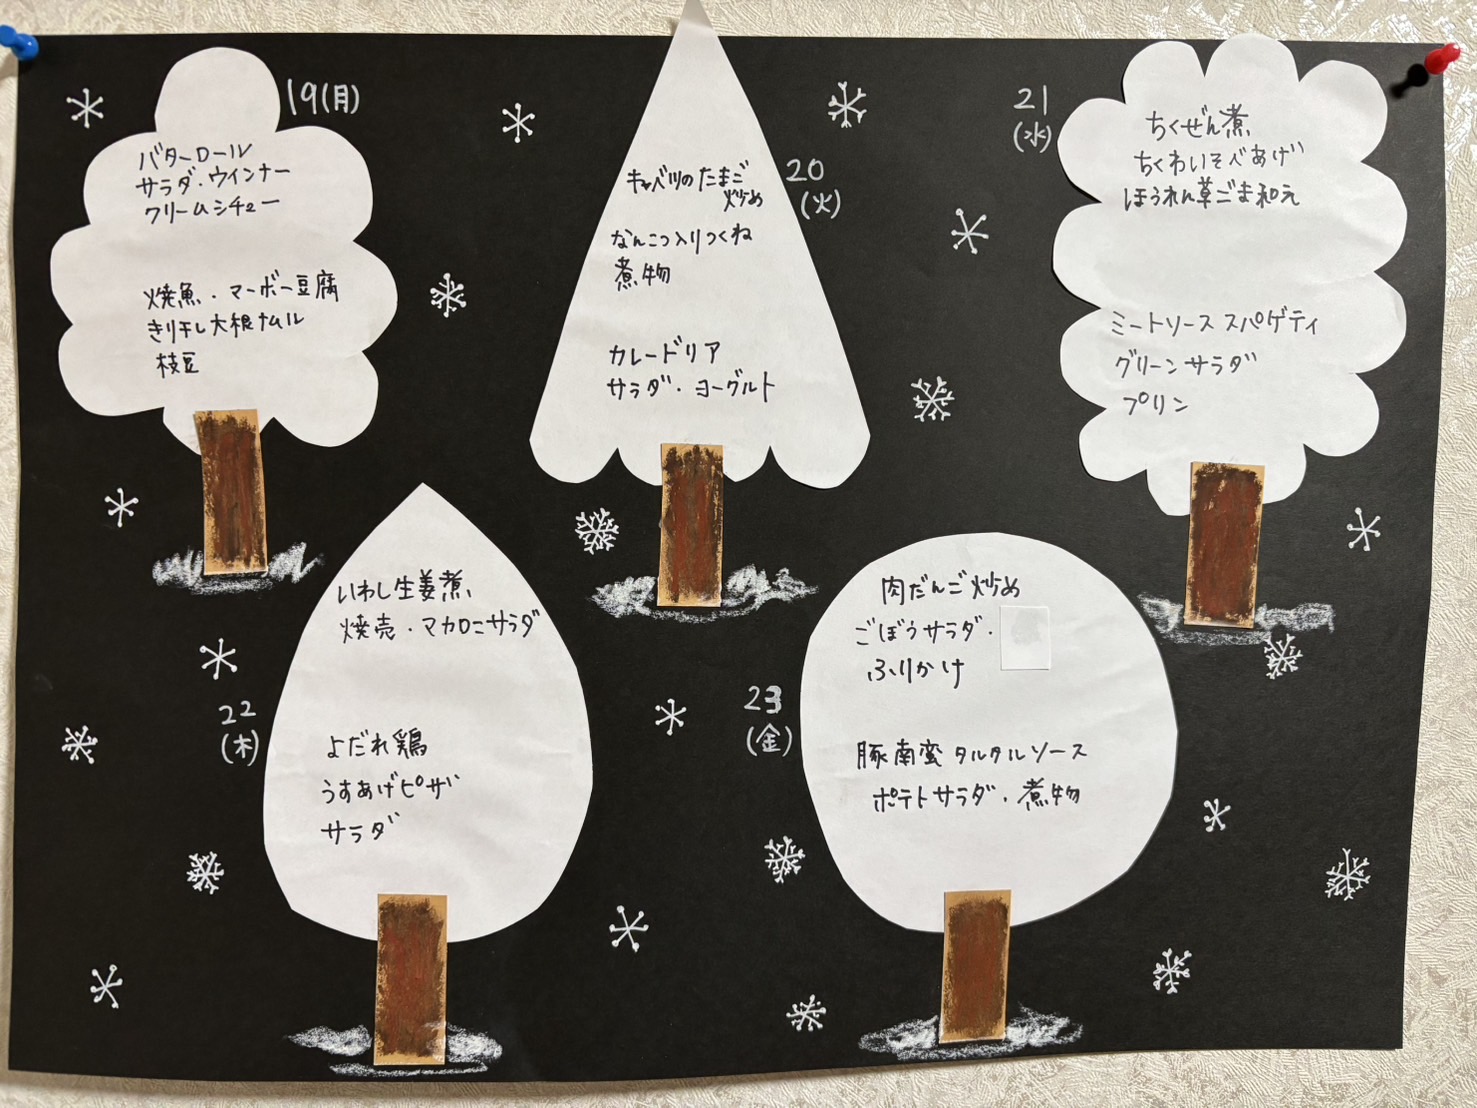 19(月)
バターロール
サラダ・ウインナー
クリームシチュー
焼魚・マーボー豆腐
きり干し大根ナムル
枝豆
20
(火)
キャベツのたまご
炒め
なんこつ入りつくね
煮物
カレードリア
サラダ・ヨーグルト
21
(水)
ちくぜん煮
ちくわいそべあげ
ほうれん草ごま和え
ミートソーススパゲティ
グリーンサラダ
プリン
22
(木)
いわし生姜煮
焼売・マカロニサラダ
よだれ鶏
うすあげピザ
サラダ
23
(金)
肉だんご炒め
ごぼうサラダ・
ふりかけ
豚南蛮タルタルソース
ポテトサラダ・煮物